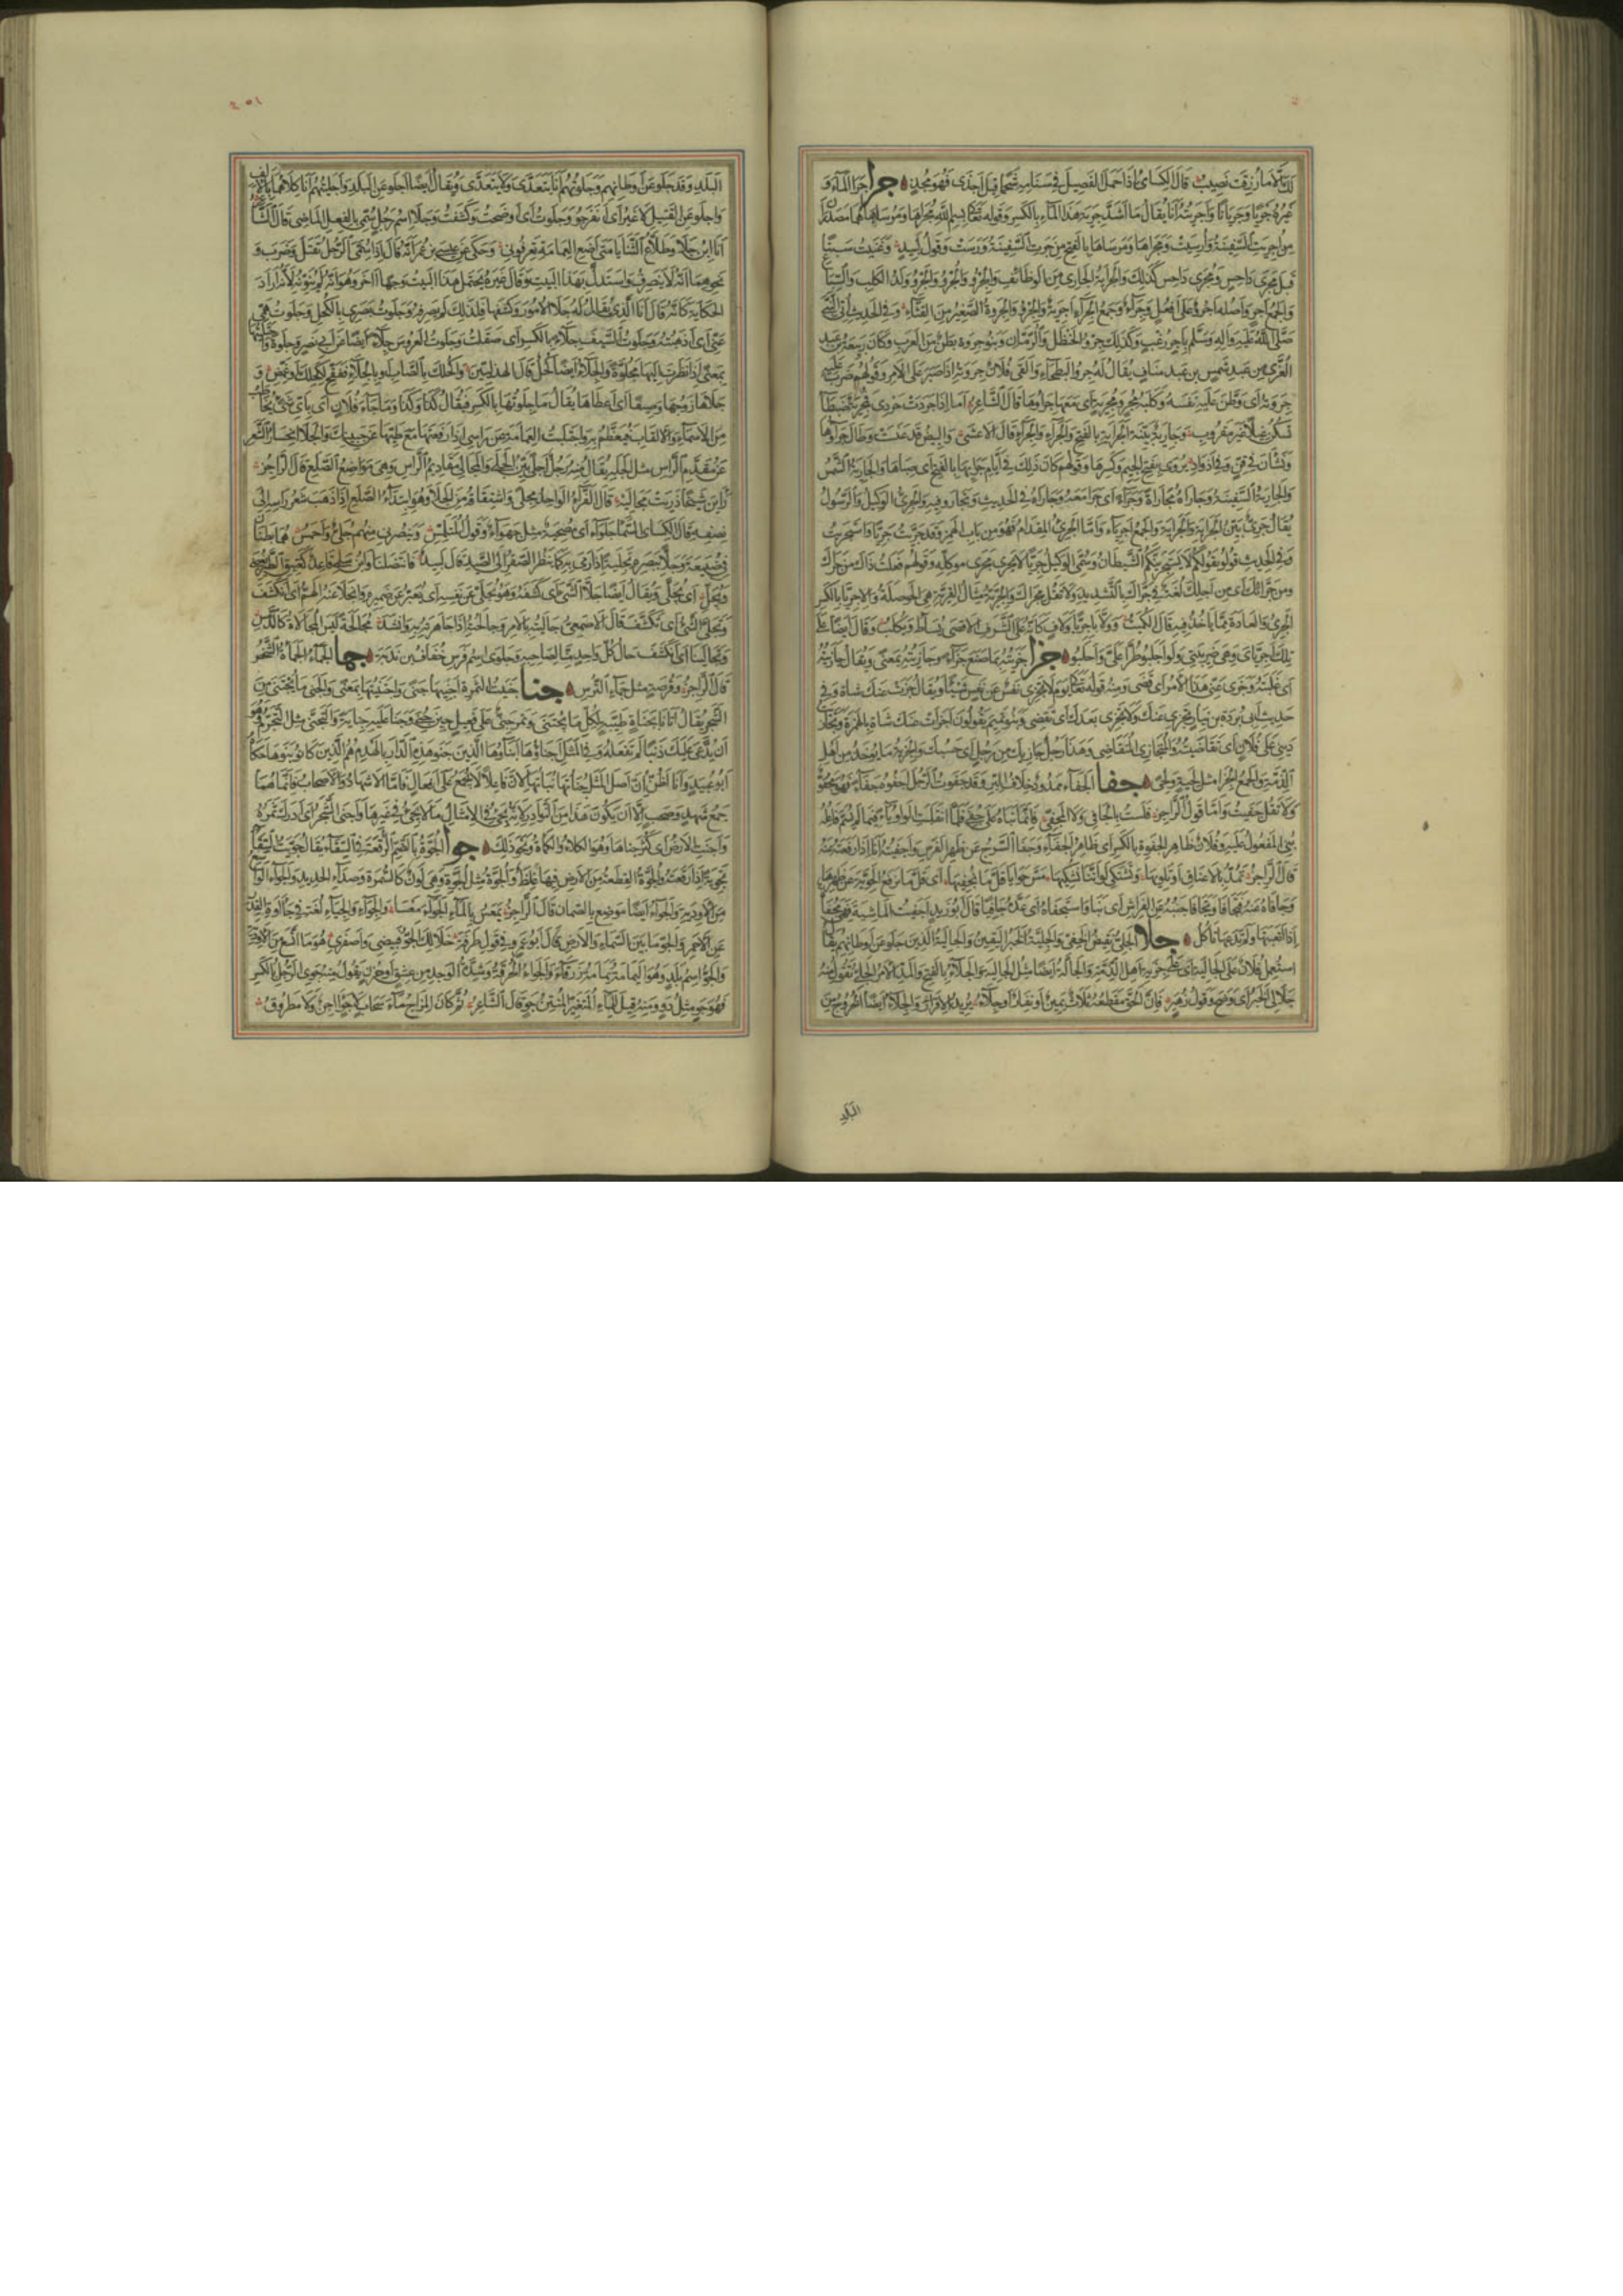 لديك الا ما رزقت نصيب قال الكسائي اذا حمل الفصيل في سنامه شحما قيل اجذى فهو مجذ جرا جرى الماء و
غيره جريا وجريانا واجريته انا يقال ما اشد جرية هذا الماء بالكسر وقوله تعالى بسم الله مجراها ومرساها هما مصدران
من اجريت السفينة وارسيت ومجراها ومرساها بالفتح من جرت السفينة ورست وقول لبيد وغنيت سبتا
قبل مجرى داحس ومجرى داحس كذلك والجراية الجاري من الوظائف والجرو والجرو والجرو ولد الكلب والسباع
والجمع اجر واصله اجرو على افعل وجراء وجمع الجراء اجرية والجرو والجروة الصغير من القثاء وفي الحديث اتي النبي
صلى الله عليه واله وسلم باجر زغب وكذلك جرو الحنظل والرمان وبنو جروة بطن من العرب وكان ربيعة بن عبد
العزى بن عبد شمس بن عبد مناف يقال له جرو البطحاء والقى فلان جروته اذا صبر على الامر وقولهم ضرب عليه
جروته اي وطن عليه نفسه وكلبة مجر ومجرية اي معها جراؤها قال الشاعر اما اذا حردت حردي فمجرية ضبطاء
تسكن غيلا غير مقروب وجارية بينة الجراية بالفتح والجراء والجراء قال الاعشى والبيض قد عنست وطال جراؤها
ونشأن في قن وفي اذواد يروى بفتح الجيم وكسرها وقولهم كان ذلك في ايام جرائها بالفتح اي صباها والجارية الشمس
والجارية السفينة وجاراه مجاراة وجراء اي جرى معه وجاراه في الحديث وتجاروا فيه والجري الوكيل والرسول
يقال جري بين الجراية والجراية والجمع اجرياء واما الجريء المقدام فهو من باب الهمز وقد جريت جريا واستجريت
وفي الحديث قولوا بقولكم لا يستجرينكم الشيطان وسمي الوكيل جريا لانه يجري مجرى موكله وقولهم فعلت ذاك من جراك
ومن جرائك اي من اجلك لغة في جراك بالتشديد ولا تقل مجراك والجرية مثال القرية هي الحوصلة والاجريا بالكسر
الجري والعادة مما ياخذ فيه قال الكميت وولى باجريا ولاف كانه على الشرف الاقصى يساط ويكلب وقال ايضا على
تلك اجرياي وهي ضريبتي ولو اجلبوا طرا علي واحلبوا جزا جزيته بما صنع جزاء وجازيته بمعنى ويقال جازيته
اي غلبته وجزى عني هذا الامر اي قضى ومنه قوله تعالى يوما لا تجزي نفس عن نفس شيئا ويقال جزت عنك شاة وفي
حديث ابي بردة بن نيار تجزي عنك ولا تجزي عن احد بعدك اي تقضي وبنو تميم يقولون اجزأت عنك شاة بالهمز وتجازيت
ديني على فلان اي تقاضيته والمتجازي المتقاضي وهذا رجل جازيك من رجل اي حسبك والجزية ما يؤخذ من اهل
الذمة والجمع الجزا مثل لحية ولحى جفا الجفاء ممدود خلاف البر وقد جفوت الرجل اجفوه جفاء فهو مجفو
ولا تقل جفيت واما قول الراجز فلست بالجافي ولا المجفي فانما بناه على جفي فلما انقلبت الواو ياء فيما لم يسم فاعله
بني المفعول عليه وفلان ظاهر الجفوة بالكسر اي ظاهر الجفاء وجفا السرج عن ظهر الفرس واجفيته انا اذا رفعته عنه
قال الراجز تمد بالاعناق او تلويها وتشتكي لو اننا نشكيها مس حوايا قل ما نجفيها اي قل ما نرفع الحوية عن ظهرها
وجافاه عنه فتجافى وتجافى جنبه عن الفراش اي نبا واستجفاه اي عده جافيا قال ابو زيد اجفيت الماشية فهي مجفاة
اذا اتعبتها ولم تدعها تاكل جلا الجلي نقيض الخفي والجلية الخبر اليقين والجالية الذين جلوا عن اوطانهم يقال
استعمل فلان على الجالية اي على جزية اهل الذمة والجالة ايضا مثل الجالية والجلاء بالفتح والمد الامر الجلي تقول منه
جلا لي الخبر اي وضح وقول زهير فان الحق مقطعه ثلاث يمين او نفار او جلاء يريد الاقرار والجلاء ايضا الخروج من
البلد
٢٥١
البلد وقد جلوا عن اوطانهم وجلوتهم انا يتعدى ولا يتعدى ويقال ايضا اجلوا عن البلد واجليتهم انا كلاهما بالالف
واجلوا عن القتيل لا غير اي انفرجوا وجلوت اي اوضحت وكشفت وجلا اسم رجل سمي بالفعل الماضي قال الشاعر
انا ابن جلا وطلاع الثنايا متى اضع العمامة تعرفوني وحكي عن عيسى بن عمر انه قال اذا سمي الرجل بقتل وضرب و
نحوهما انه لا يصرف واستدل بهذا البيت وقال غيره يحتمل هذا البيت وجها اخر وهو انه لم ينونه لانه اراد
الحكاية كانه قال انا ابن الذي يقال له جلا الامور وكشفها فلذلك لم يصرفه وجلوت بصري بالكحل وجلوت همي
عني اي اذهبته وجلوت السيف جلاء بالكسر اي صقلت وجلوت العروس جلاء ايضا عن ابي نصر وجلوة واجتليتها
بمعنى اذا نظرت اليها مجلوة والجلاء ايضا الكحل قال الهذلي واكحلك بالصاب او بالجلاء ففقح لكحلك او غمض و
جلاها زوجها وصيفا اي اعطاها يقال ما جلوتها بالكسر فيقال كذا وكذا وما جلاء فلان اي باي شيء يخاطب
من الاسماء والالقاب فيعظم به واجتليت العمامة عن راسي اذا رفعتها مع طيها عن جبينك والجلا انحسار الشعر
عن مقدم الراس مثل الجله يقال منه رجل اجلى بين الجلا والمجالي مقاديم الراس وهي مواضع الصلع قال الراجز
راين شيخا ذرئت مجاليه قال الفراء الواحد مجلى واشتقاقه من الجلا وهو ابتداء الصلع اذا ذهب شعر راسه الى
نصفه وقال الكسائي السماء جلواء اي مصحية مثل جهواء وقول المتلمس ونصر في منهم جلي واحمس هما بطنان
في ضبيعة وجلى ببصره تجلية اذا رمى به كما ينظر الصقر الى الصيد قال لبيد فانتضلنا وابن سلمى قاعد كعتيق الطير يغضي
ويجل اي يجلي ويقال ايضا جلى الشيء اي كشفه وهو يجلي عن نفسه اي يعبر عن ضميره وانجلى عنه الهم اي انكشف
وتجلى الشيء اي تكشف قال الاصمعي جاليته بالامر وجالحته اذا جاهرته به وانشد مجالحة ليس المجالاة كالدمس
وتجالينا اي انكشف حال كل واحد منا لصاحبه وجلوى اسم فرس خفاف بن ندبة جما الجماء الجماءة الشخص
قال الراجز وقرصة مثل جماء الترس جنا جنيت الثمرة اجنيها جنى واجتنيتها بمعنى والجنى ما يجتنى من
الشجر يقال اتانا بجناة طيبة لكل ما يجتنى وثمر جني على فعيل حين جني وجنى عليه جناية والتجني مثل التجرم وهو
ان يدعي عليك ذنبا لم تفعله وفي المثل اجناؤها ابناؤها اي الذين جنوا هدم الدار بالهدم هم الذين كانوا بنوها حكاه
ابو عبيد وانا اظن ان اصل المثل جناتها بناتها لان فاعلا لا يجمع على افعال فاما الاشهاد والاصحاب فانما هما
جمع شهد وصحب الا ان يكون هذا من النوادر لانه يجيء في الامثال ما لا يجيء في غيرها واجنى الشجر اي ادرك ثمره
واجنت الارض اي كثر جناها وهو الكلأ والكمأة ونحو ذلك جوا الجوة بالضم الرقعة في السقاء يقال جويت السقاء
تجوية اذا رقعته والجوة القطعة من الارض فيها غلظ والجوة مثل الحوة وهي لون كالسمرة وصداء الحديد والجواء الواسع
من الاودية والجواء ايضا موضع بالصمان قال الراجز يمعس بالماء الجواء معسا والجواء والجياء لغة في جئاوة القدر
عن الاحمر والجو ما بين السماء والارض قال ابو عمرو في قول طرفة خلا لك الجو فبيضي واصفري هو ما اتسع من الاودية
والجو اسم بلد وهو اليمامة يمامة زرقاء والجوى الحرقة وشدة الوجد من عشق او حزن يقول منه جوي الرجل بالكسر
فهو جو مثل دو ومنه قيل للماء المتغير المنتن جو قال الشاعر ثم كان المزاج ماء سحاب لا جو اجن ولا مطروق